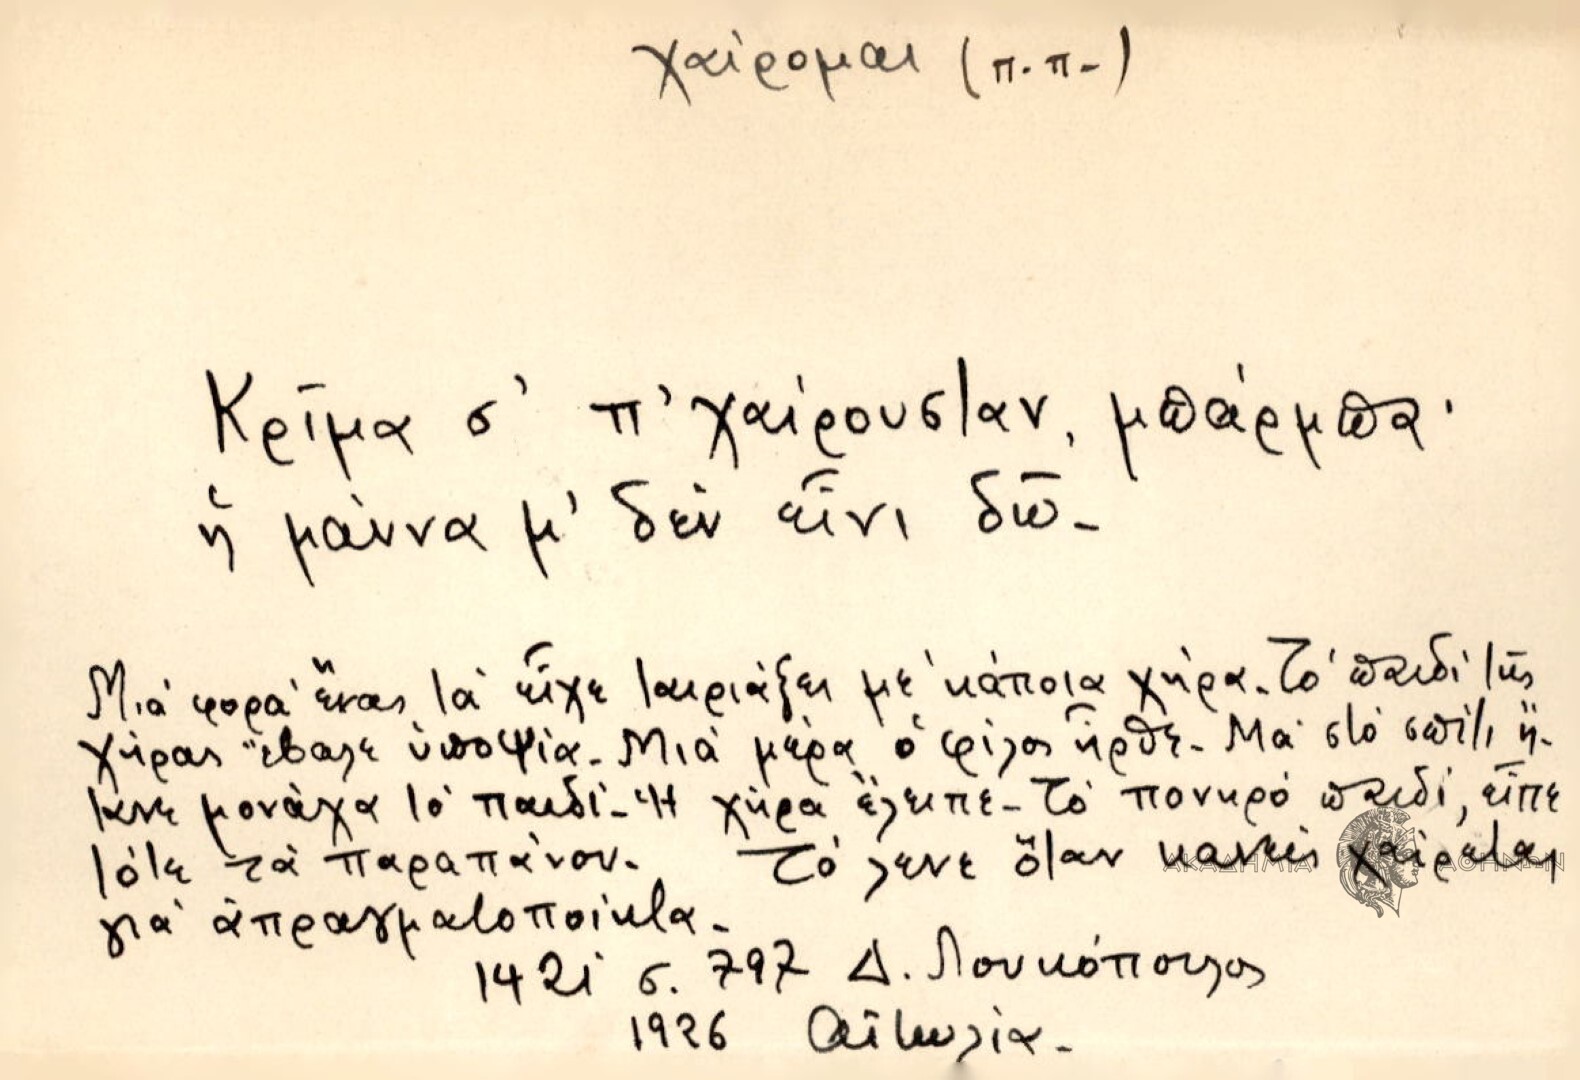 χαίρομαι (π.π-)
Κρῖμα σ' π' χαίρουσταν, μπάρμπα·
ἡ μάννα μ' δὲν εἶνι δῶ-
Μιὰ φορὰ ἕνας τἄ εἶχε ταιριάξει μὲ κάποια χήρα. Τὸ παιδὶ τῆς
χήρας ἔβαλε ὑποψία. Μιὰ μέρα ὁ φίλος ἦρθε. Μὰ στὸ σπίτι ἤ-
τανε μονάχα τὸ παιδί. Ἡ χήρα ἔλειπε. Τὸ πονηρὸ παιδί, εἶπε
τότε τὰ παραπάνου. Τὸ λένε ὅταν κανεὶς χαίρεται
ΑΚΑΔΗΜΙΑ ΑΘΗΝΩΝ
γιὰ ἀπραγματοποίητα.
σ. 797 Δ. Λουκόπουλος
1926 Αἰτωλία.